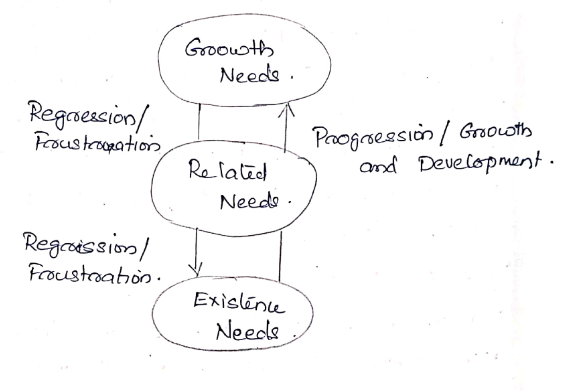 Growth
Needs.
Regression/
Froustroation
Progression / Growth
and Development.
Related
Needs.
Regression/
Froustroation.
Existence
Needs.